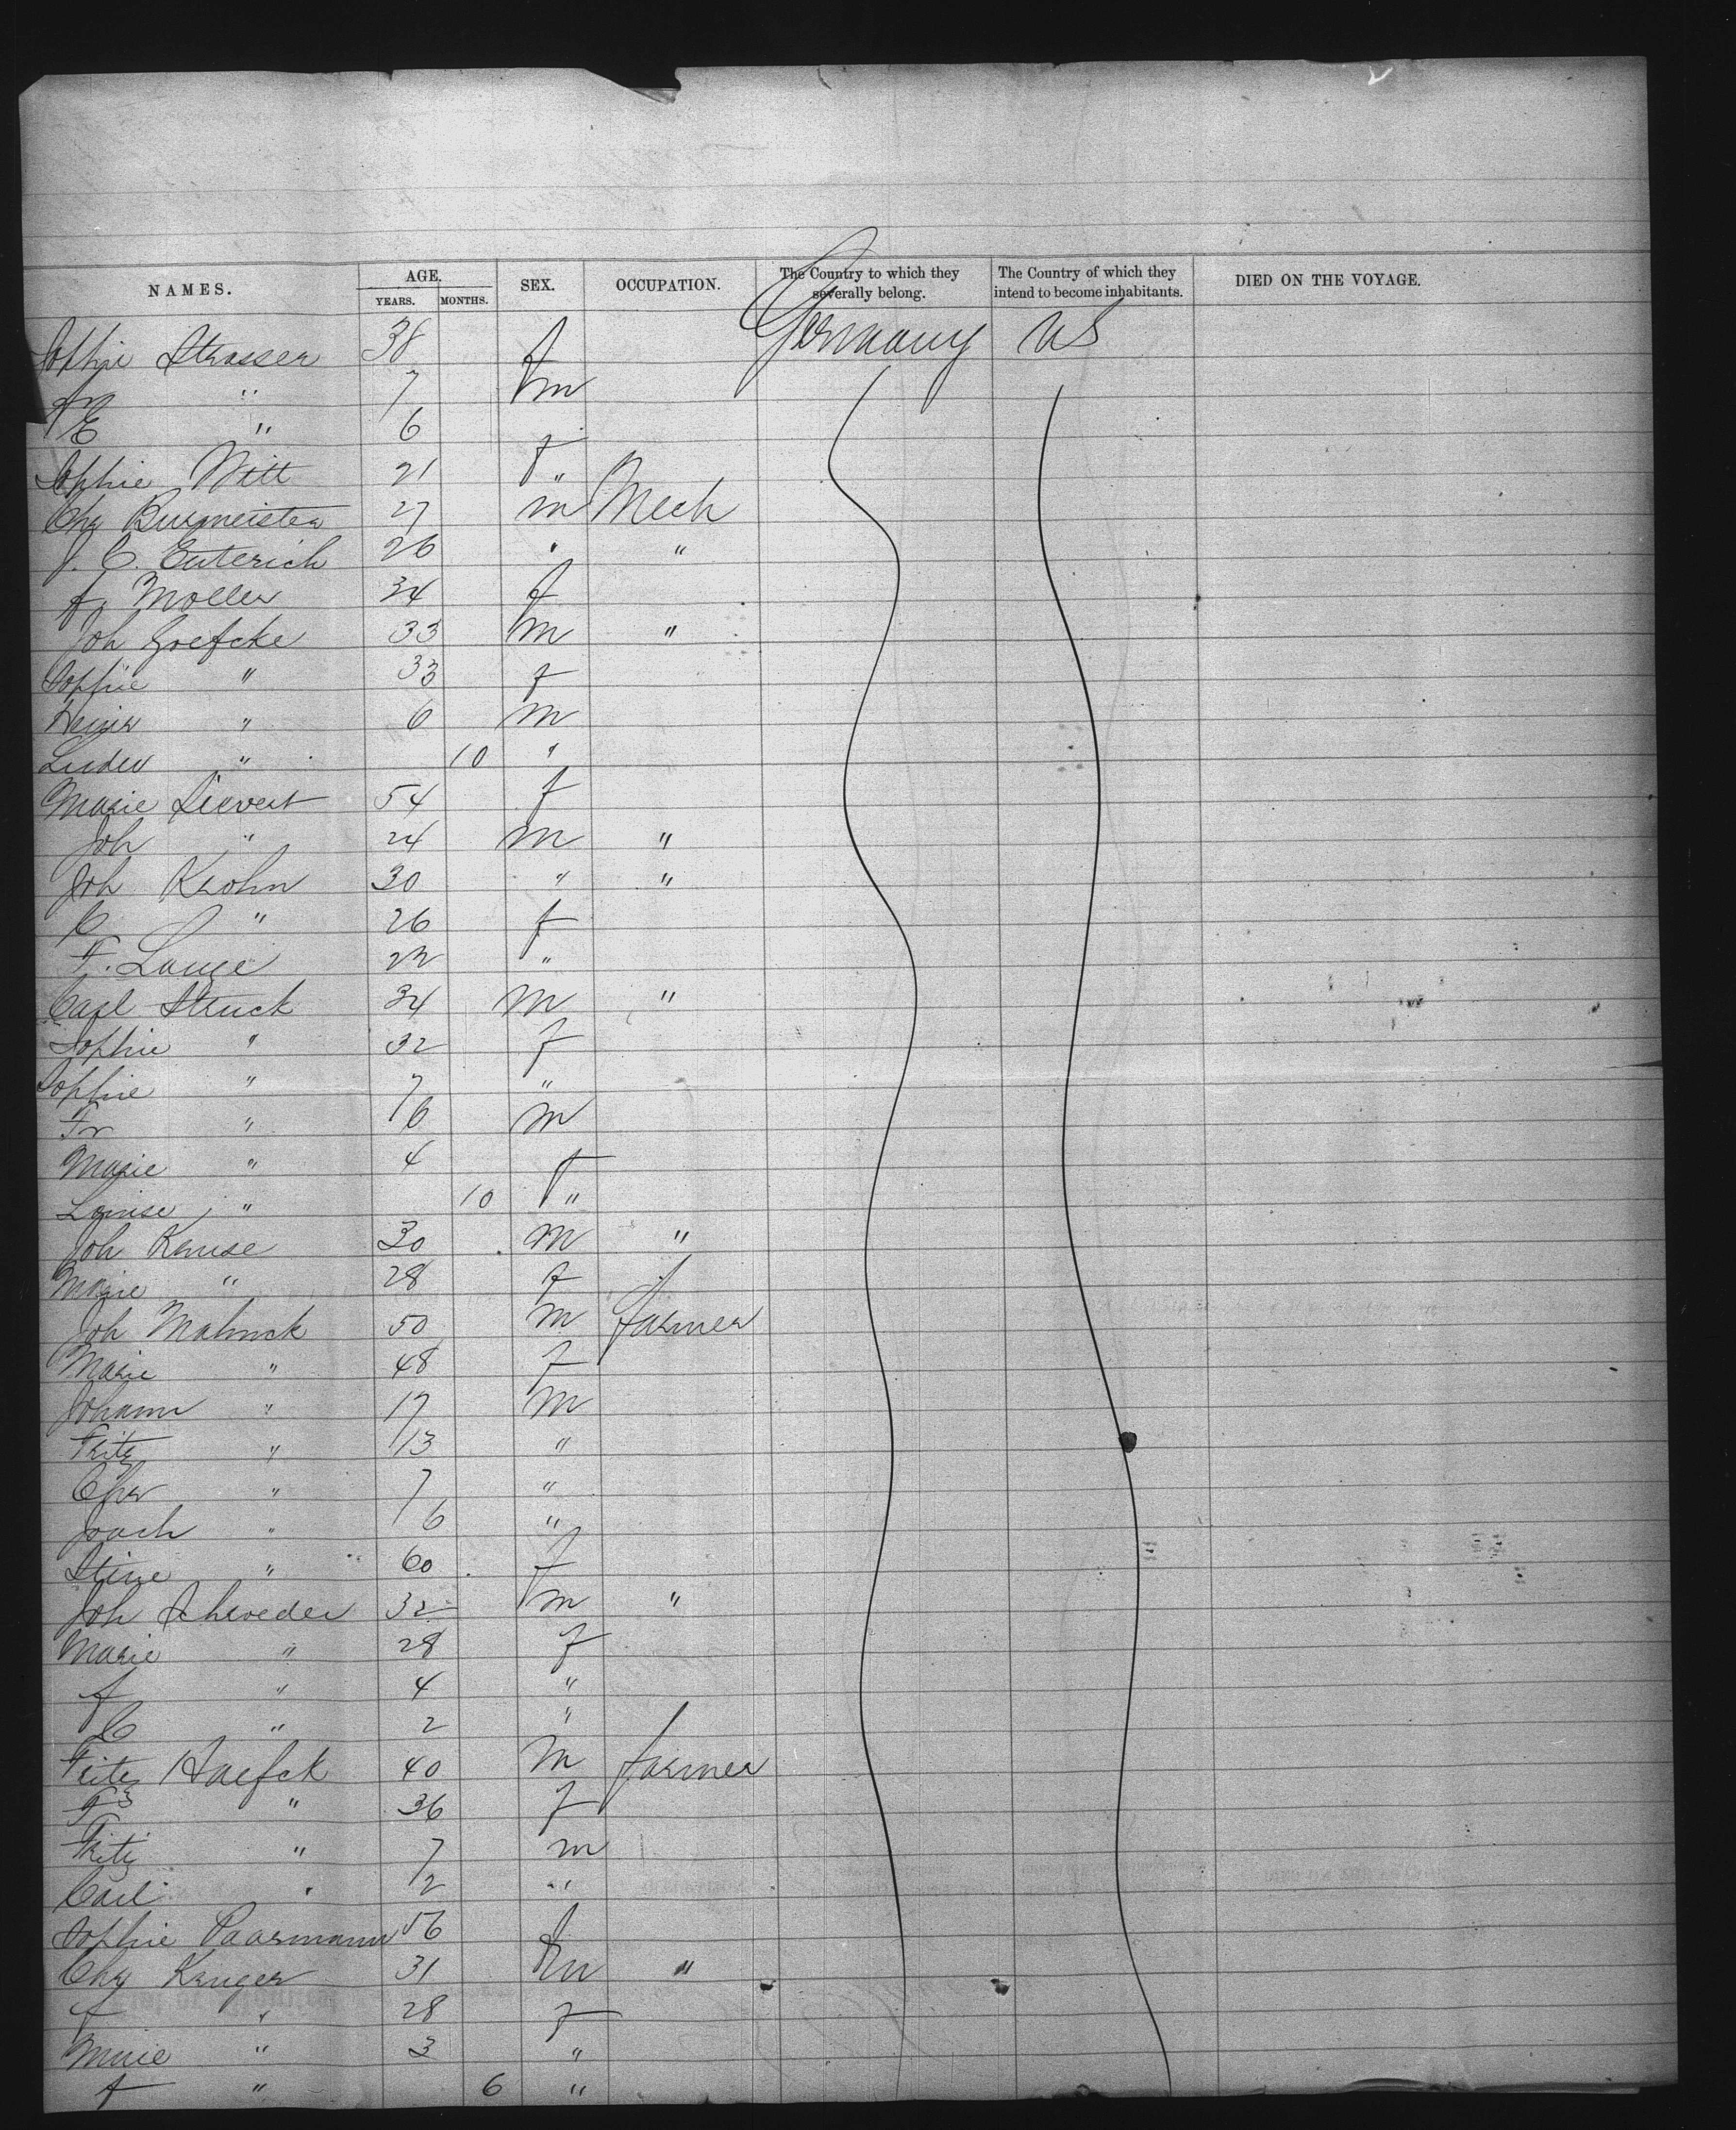 NAMES. AGE. SEX. OCCUPATION. The Country to which they severally belong. The Country of which they intend to become inhabitants. DIED ON THE VOYAGE.
YEARS. MONTHS.
Sophie Strasser 38 f Germany US
7 m
E " 6 f
Sophie Witt 21 "
Chs Burmeister 27 m Mech
J. C. Euterich 26 " "
Moller 34 f
Joh Grefcke 33 m "
Sophie " 33 f
Heinr " 6 m
Luder " 10 "
Marie Sievert 54 f
Joh " 24 m "
Joh Krohn 30 " "
C " 26 f
F. Lange 22 "
Carl Struck 34 m "
Sophie " 32 f
Sophie " 7 "
Fr " 6 m
Marie " 4 f
Louise " 10 "
Joh Kruse 30 m "
Marie " 28 f
Joh Mahnck 50 m farmer
Marie " 48 f
Johann " 17 m
Fritz " 13 "
Chr " 7 "
Joach " 6 "
Stine " 60 f
Joh Schroeder 32 m "
Marie " 28 f
f " 4 "
C " 2 "
Fritz Haefck 40 m farmer
" 36 f
Fritz " 7 m
Carl " 2 "
Sophie Paarmann 56 f
Chs Kruger 31 m "
f " 28 f
Marie " 3 "
f " 6 "